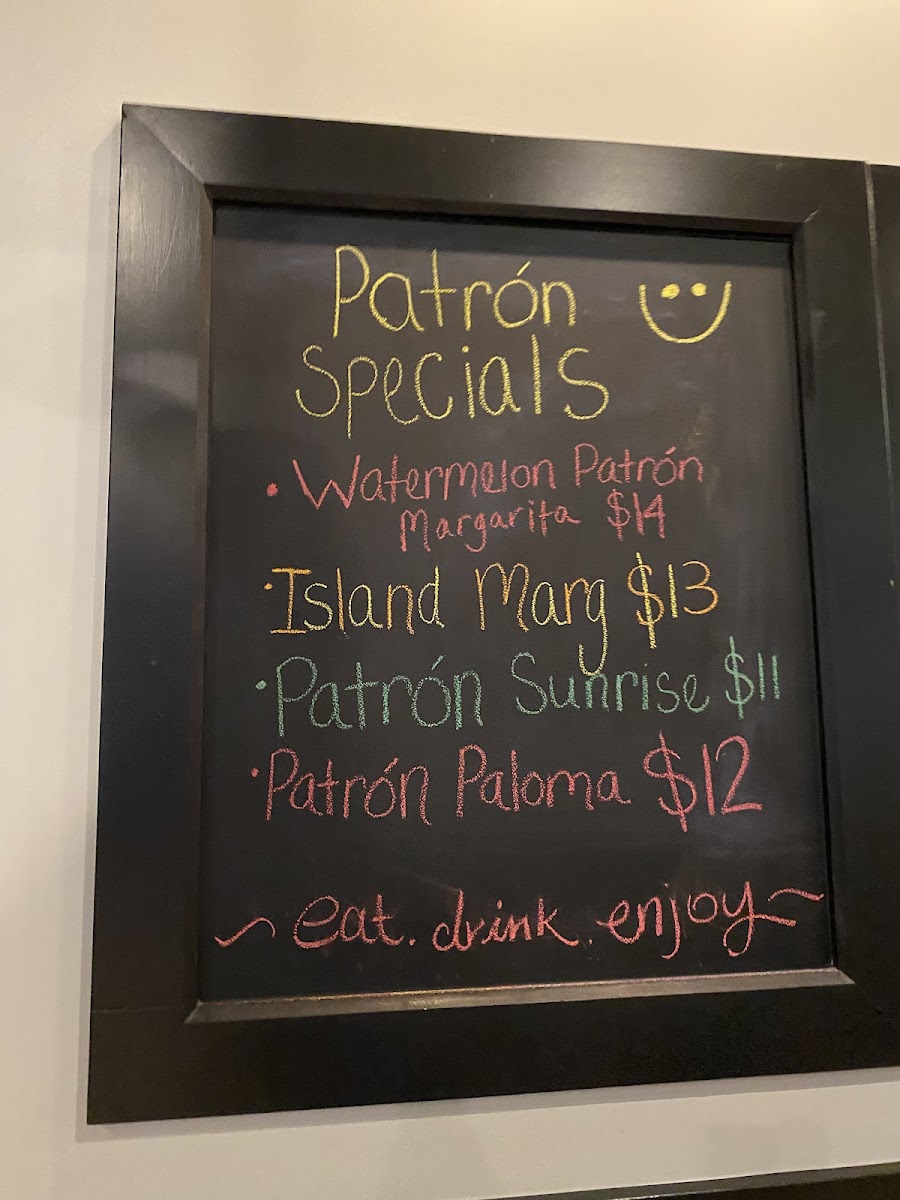 Patrón
Specials
• Watermelon Patrón
Margarita $14
• Island Marg $13
• Patrón Sunrise $11
• Patrón Paloma $12
~ eat. drink. enjoy ~